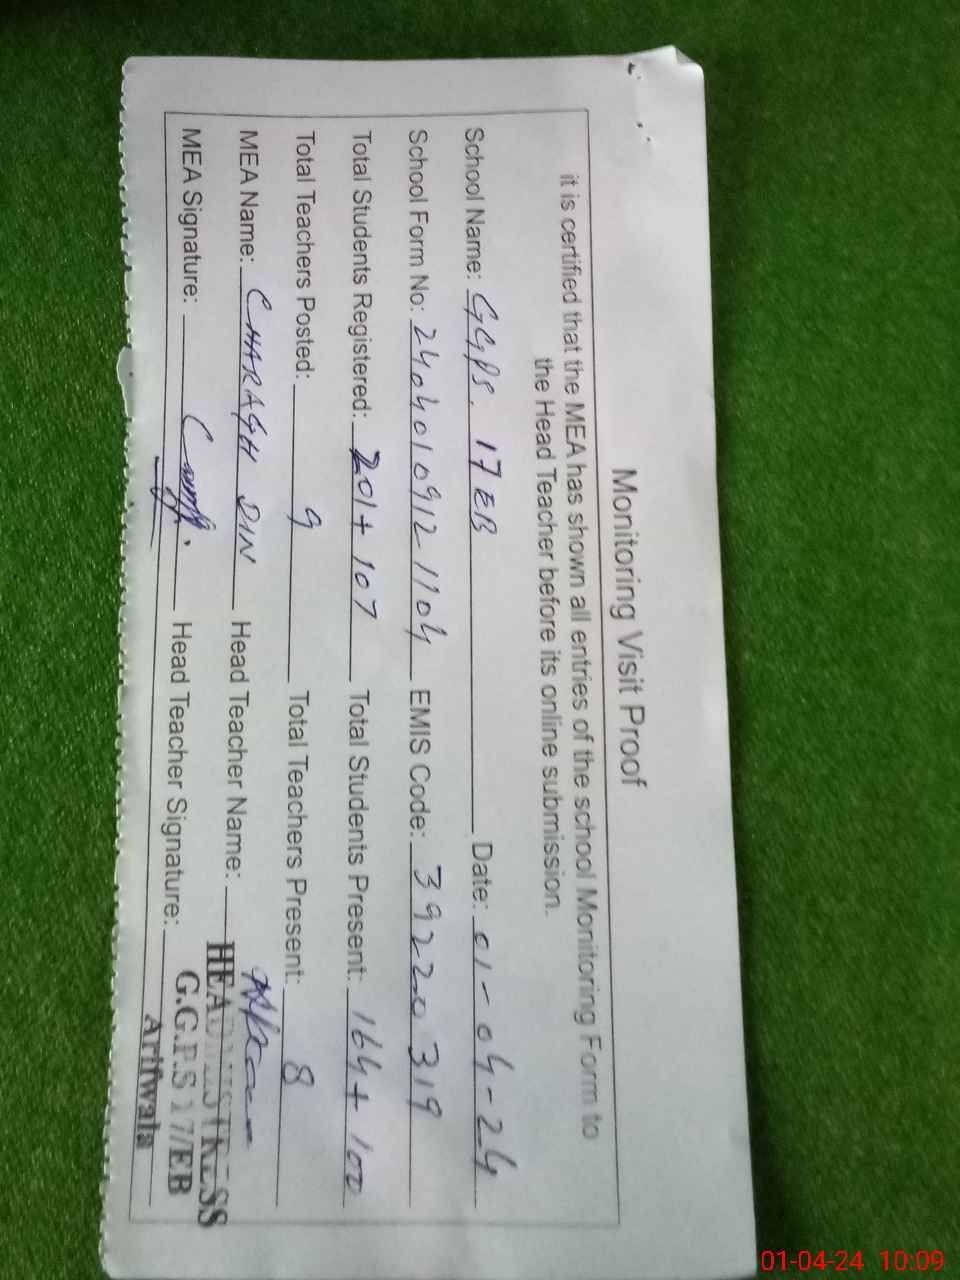 Monitoring Visit Proof
it is certified that the MEA has shown all entries of the school Monitoring Form to
the Head Teacher before its online submission.
School Name: GGPS. 17 EB Date: 01-04-24
School Form No: 2404010912 1104 EMIS Code: 39220319
Total Students Registered: 201+107 Total Students Present: 164+100
Total Teachers Posted: 9 Total Teachers Present: 8
MEA Name: CHARAGH DIN Head Teacher Name:
MEA Signature: Head Teacher Signature:
HEADMISTRESS
G.G.P.S 17/EB
Arifwala
01-04-24 10:09